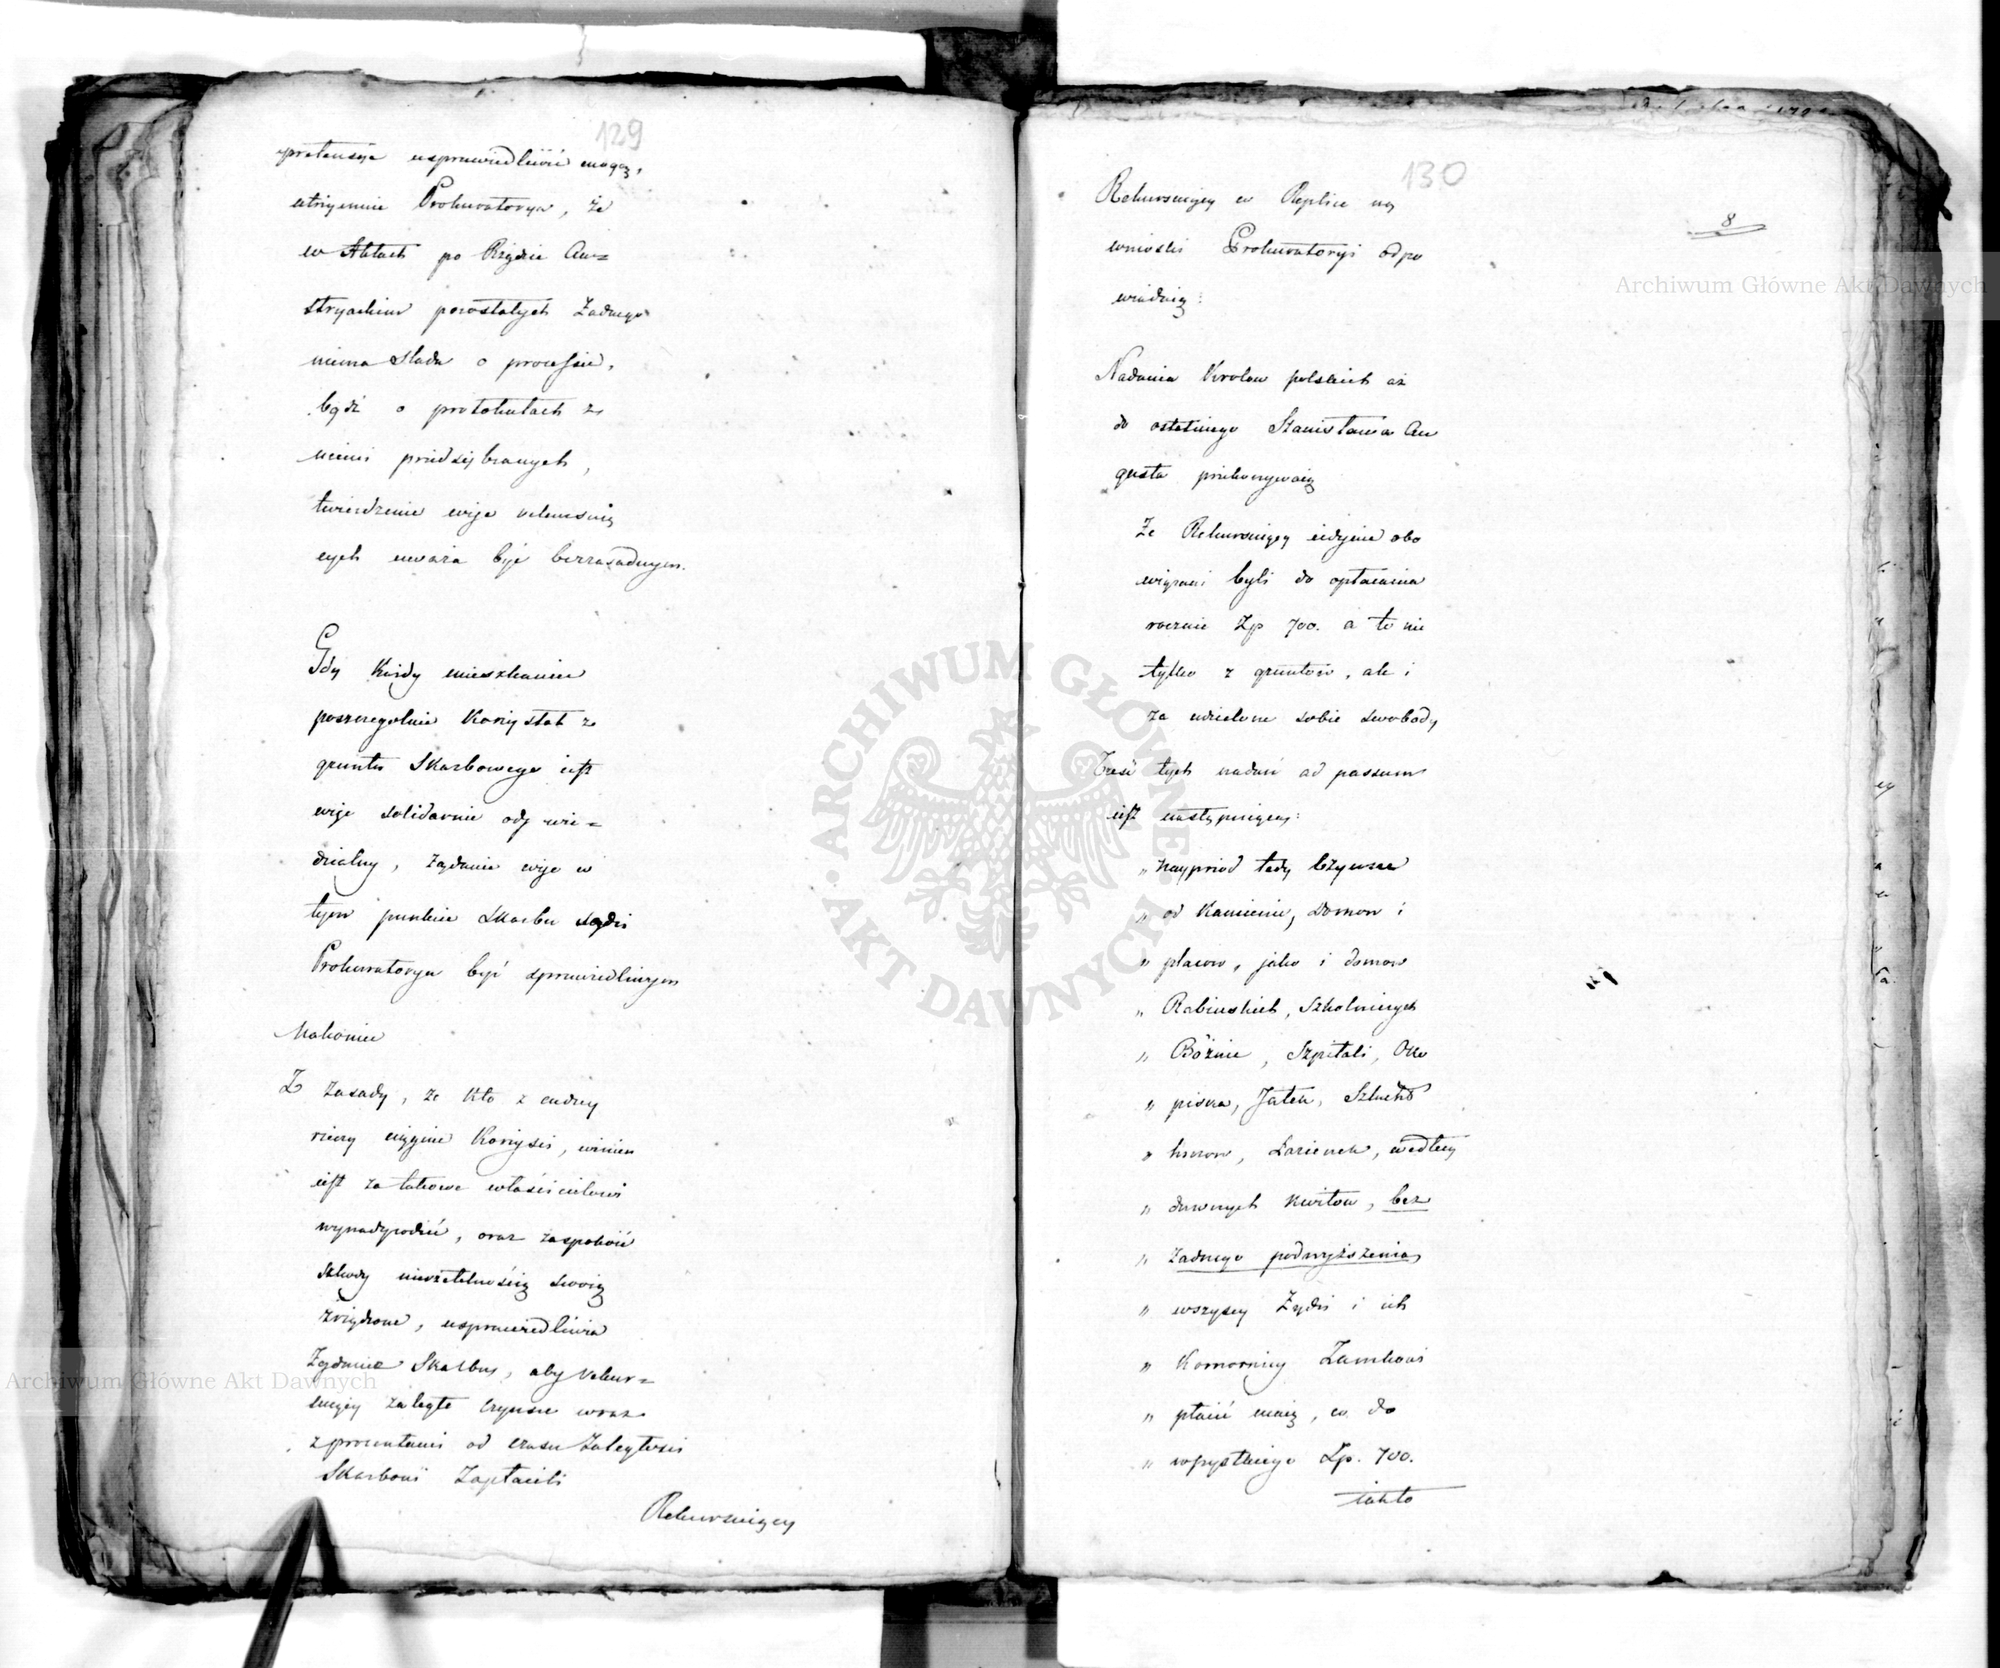 129
pretensye usprawiedliwić mogą,
utrzymuie Prokuratorya, że
w Aktach po Rządzie Au=
stryackim pozostałych żadnego
niema śladu o processie,
bądź o protokułach z
niemi przedsiębranych,
twierdzenie więc rekursuią
cych uważa być bezzasadnym.
Gdy każdy mieszkaniec
poszczególnie korzystał z
gruntu Skarbowego iest
więc solidarnie odpowie=
dzialny, żądanie więc w
tym punkcie Skarbu sądzi
Prokuratorya być sprawiedliwym
Nakoniec
Z zasady, że kto z cudzey
rzeczy ciągnie korzyści, winien
iest za takowe właścicielowi
wynadgrodzić, oraz zaspokoić
szkody nierzetelnością swoią
zrządzone, usprawiedliwia
żądanie Skarbu, aby rekur=
suiący zaległe czynsze wraz
z procentami od czasu zaległości
Skarbowi zapłacili
Rekursuiący
130
8
Rekursuiący w Replice na
wnioski Prokuratoryi odpo
wiadaią:
Nadania Krolow polskich aż
do ostatniego Stanisława Au
gusta przekonywaią
Że Rekursuiący iedynie obo
wiązani byli do opłacania
rocznie Zp 700. a to nie
tylko z gruntow, ale i
za udzielone sobie swobody
Treść tych nadań ad passum
iest następuiąca:
„ Nayprzod tedy czynsze
„ od Kamienic, Domow i
„ placow, jako i domow
„ Rabinskich, Szkolnicych
„ Bóżnic, Szpitali, Oko
„ piska, Jatek, Szlacht
„ huzow, Łazienek, według
„ dawnych kwitow, bez
„ żadnego podwyższenia
„ wszyscy Żydzi i ich
„ Komornicy Zamkowi
„ płacić maią, co do
„ wszystkiego Zp. 700.
iakto
Archiwum Główne Akt Dawnych
Archiwum Główne Akt Dawnych
ARCHIWUM GŁÓWNE · AKT DAWNYCH ·